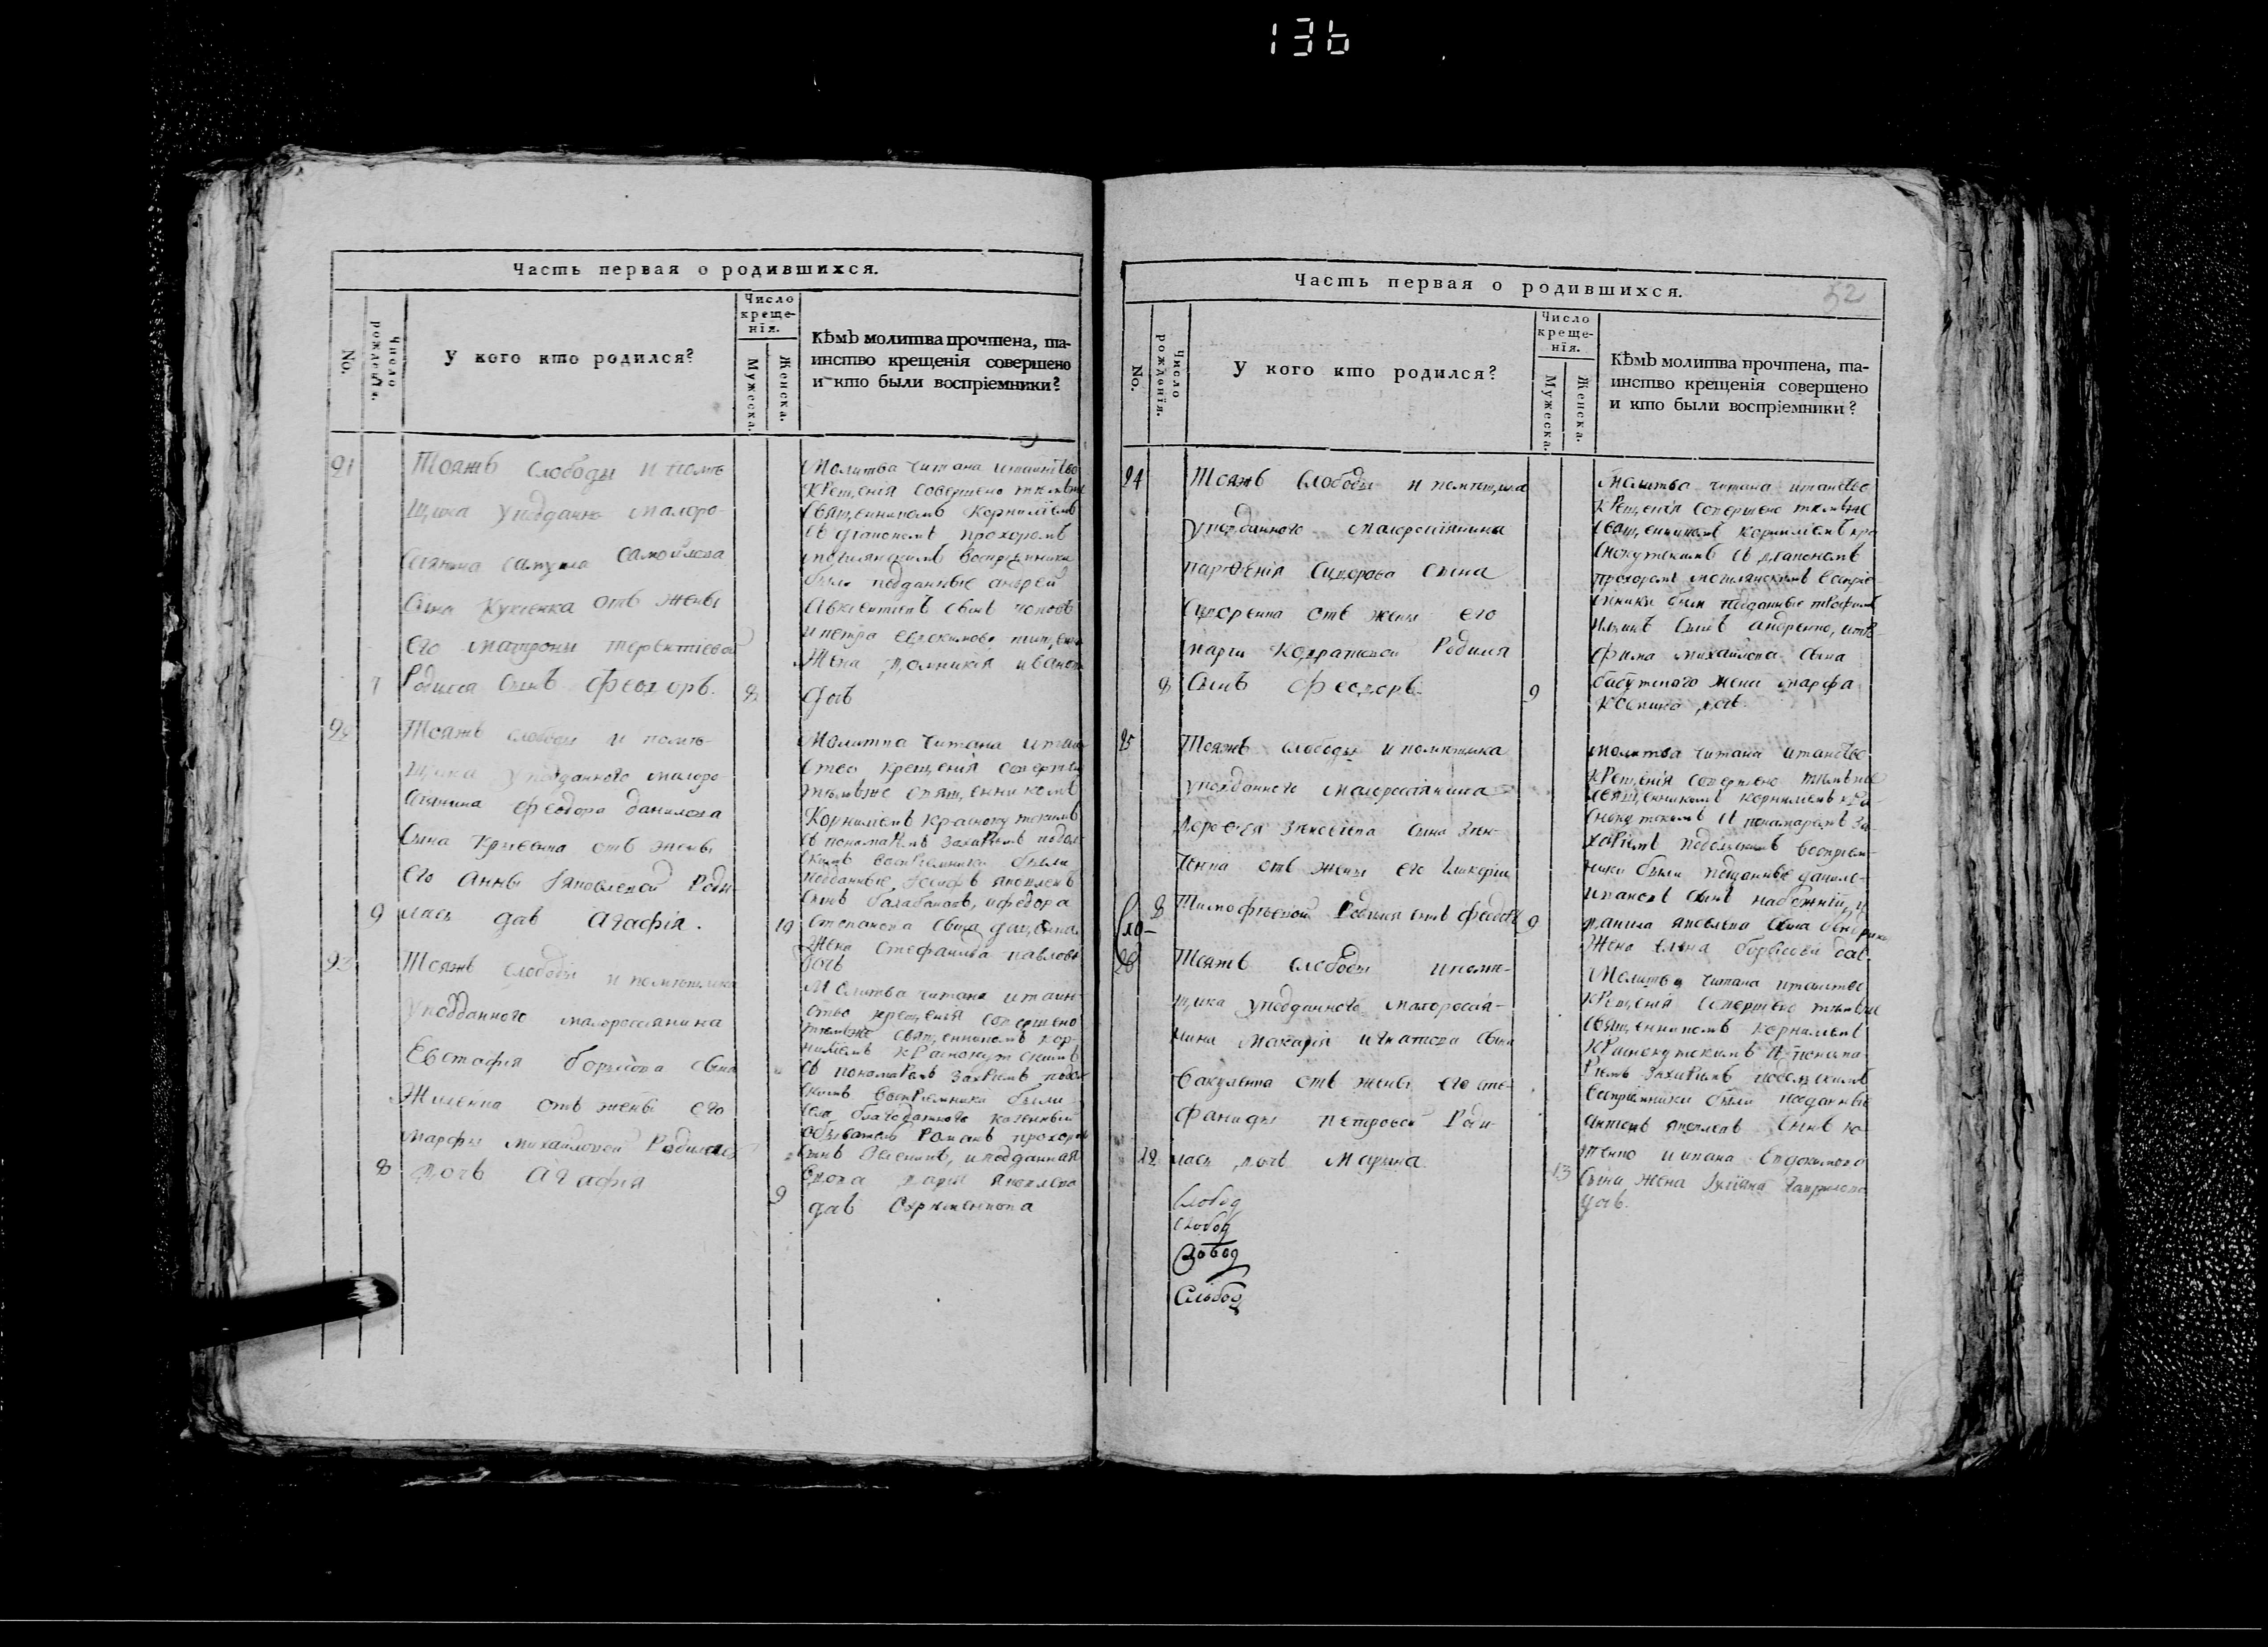 136
Часть первая о родившихся.
No.
Число рожденія.
У кого кто родился?
Число
креще-
нія.
Мужеска.
Женска.
Кѣмъ молитва прочтена, та-
инство крещенія совершено
и кто были воспріемники?
91
Тояжъ слободы и помѣ-
щика уподдано малоро-
сіянина самуила самойлова
сына отъ жены
его матроны терентіевой
7 Родился сынъ Феодоръ. 8
Молитва читана итаинство
крещенія совершено тѣмъже
священникомъ корниліемъ
съ діакономъ прохоромъ
воспріемники
были подданные андрей
сынъ
и петра евдокимова
жена домникія иванова
дочь
92
Тояжъ слободы и помѣ-
щика уподданного малоро-
сіянина феодора данилова
сына отъ жены
его анны Іяковлевой Роди-
9 лась дочь агафія. 10
Молитва читана итаин-
ство крещенія соверше
тѣмъже священникомъ
Корниліемъ краснокутскимъ
съ пономаремъ захаріемъ подол-
скимъ воспріемники были
подданные Іосифъ яковлевъ
сынъ балабановъ, ифедора
степанова сына
жена стефанида павлова
дочь
93
Тояжъ слободы и помѣщика
уподданного малоросіянина
Евстафія борисова сына
отъ жены его
марфы михайловой Родилась
8 дочь агафія 9
Молитва читана итаин-
ство крещенія совершено
тѣмъже священникомъ кор-
ниліемъ краснокутскимъ
съ пономаремъ захаріемъ подол-
скимъ воспріемники были
села благодатного казенный
обыватель Романъ прохоровъ
сынъ иподданная
дарія яковлева
дочь
Часть первая о родившихся.
52
No.
Число рожденія.
У кого кто родился?
Число
креще-
нія.
Мужеска.
Женска.
Кѣмъ молитва прочтена, та-
инство крещенія совершено
и кто были воспріемники?
94
Тояжъ слободы и помѣщика
уподданного малоросіянина
парѳенія сидорова сына
сидоренка отъ жены его
маріи кодратовой Родился
8 сынъ феодоръ. 9
Молитва читана итаинство
крещенія совершено тѣмъже
священникомъ корниліемъ кра
снокутскимъ съ діакономъ
прохоромъ воспріе-
мники были подданные трофимъ
сынъ андренко,
фима михайлова сына
жена марфа
дочь.
95
Тояжъ слободы и помѣщика
уподданного малоросіянина
дороѳея зѣновіева сына зѣн-
ченка отъ жены его гликеріи
8 Тимофѣевой Родился сынъ феодоръ 9
Молитва читана итаинство
крещенія совершено тѣмъже
священникомъ корниліемъ кра-
снокутскимъ съ пономаремъ за-
харіемъ подолскимъ воспріем-
ники были подданные данило
ивановъ сынъ и
данила яковлева сына
жена елена борисова дочь.
Сло-
96
Тояжъ слободы ипомѣ-
щика уподданного малоросія-
нина макарія игнатова сына
бакуленка отъ жены его сте-
фаниды петровой Роди-
12 лась дочь Марина. 13
Молитва читана итаинство
крещенія совершено тѣмъже
священникомъ корниліемъ
краснокутскимъ съ понома-
ремъ захаріемъ подолскимъ
воспріемники были подданные
антонъ яковлевъ сынъ
ивана евдокимова
сына жена Іуліяна гаврилова
дочь.
Слобод
Слобод
Зобод
Слобод